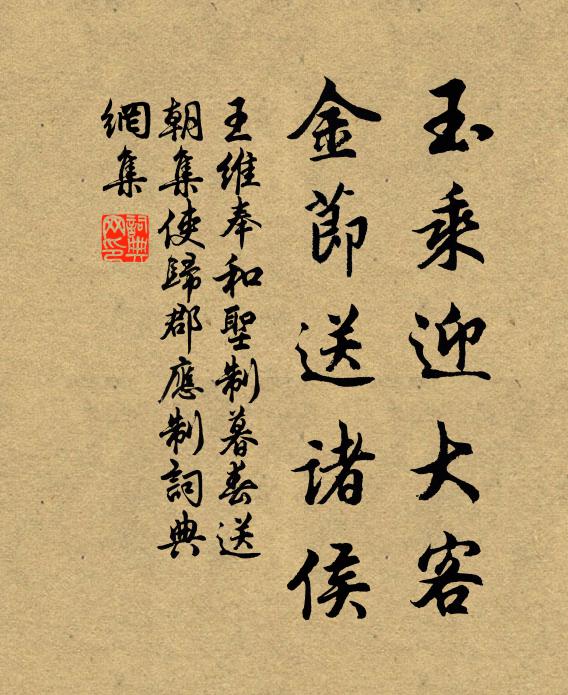 玉乘迎大客
金節送諸侯
王維奉和聖制暮春送
朝集使歸郡應制詞典
網集
詞典
网印